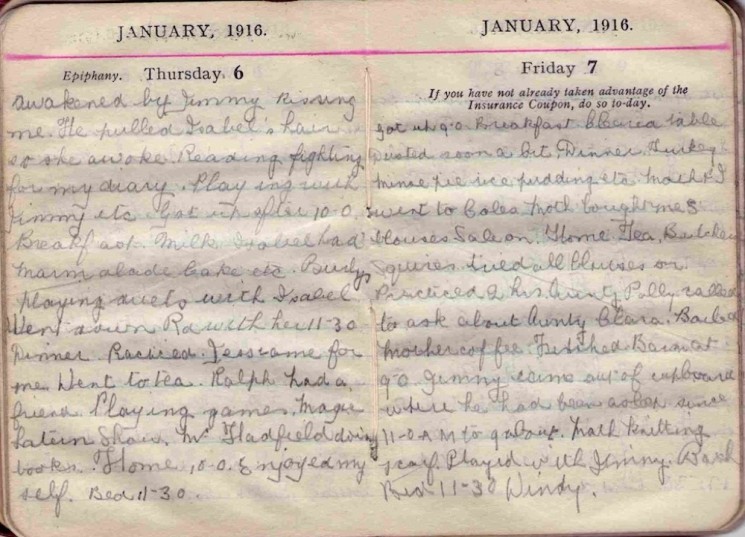 JANUARY, 1916.
Epiphany. Thursday 6
awakened by Jimmy Kissing
me. He pulled Isabel's hair
so she awoke. Reading, fighting
for my diary. Playing with
Jimmy etc. Got up after 10-0.
Breakfast. Milk. Isabel had
marmalade cake etc.
playing duets with Isabel
Went down Rd with her 11-30
Dinner. came for
me. Went to tea. Ralph had a
friend. Playing games. Magic
Latern Show. Mr Hadfield doing
books. Home 10-0. Enjoyed my
self. Bed 11-30.
JANUARY, 1916.
Friday 7
If you have not already taken advantage of the
Insurance Coupon, do so to-day.
got up 9.0. Breakfast cleared table
Dusted room a bit. Dinner. Turkey
mince pie rice pudding etc. Moth & I
went to Coles Moth bought me 3
blouses Sale on. Home Tea,
Squires. tried all blouses on
Practiced 2 hrs. Aunty Polly called
to ask about Aunty Clara.
Mother coffee. Finished at
9.0. Jimmy came out of cupboard
where he had been asleep since
11-0 A.M to 9 about. Moth knitting
scarf Played with Jimmy. Bath
Bed 11-30 Windy.